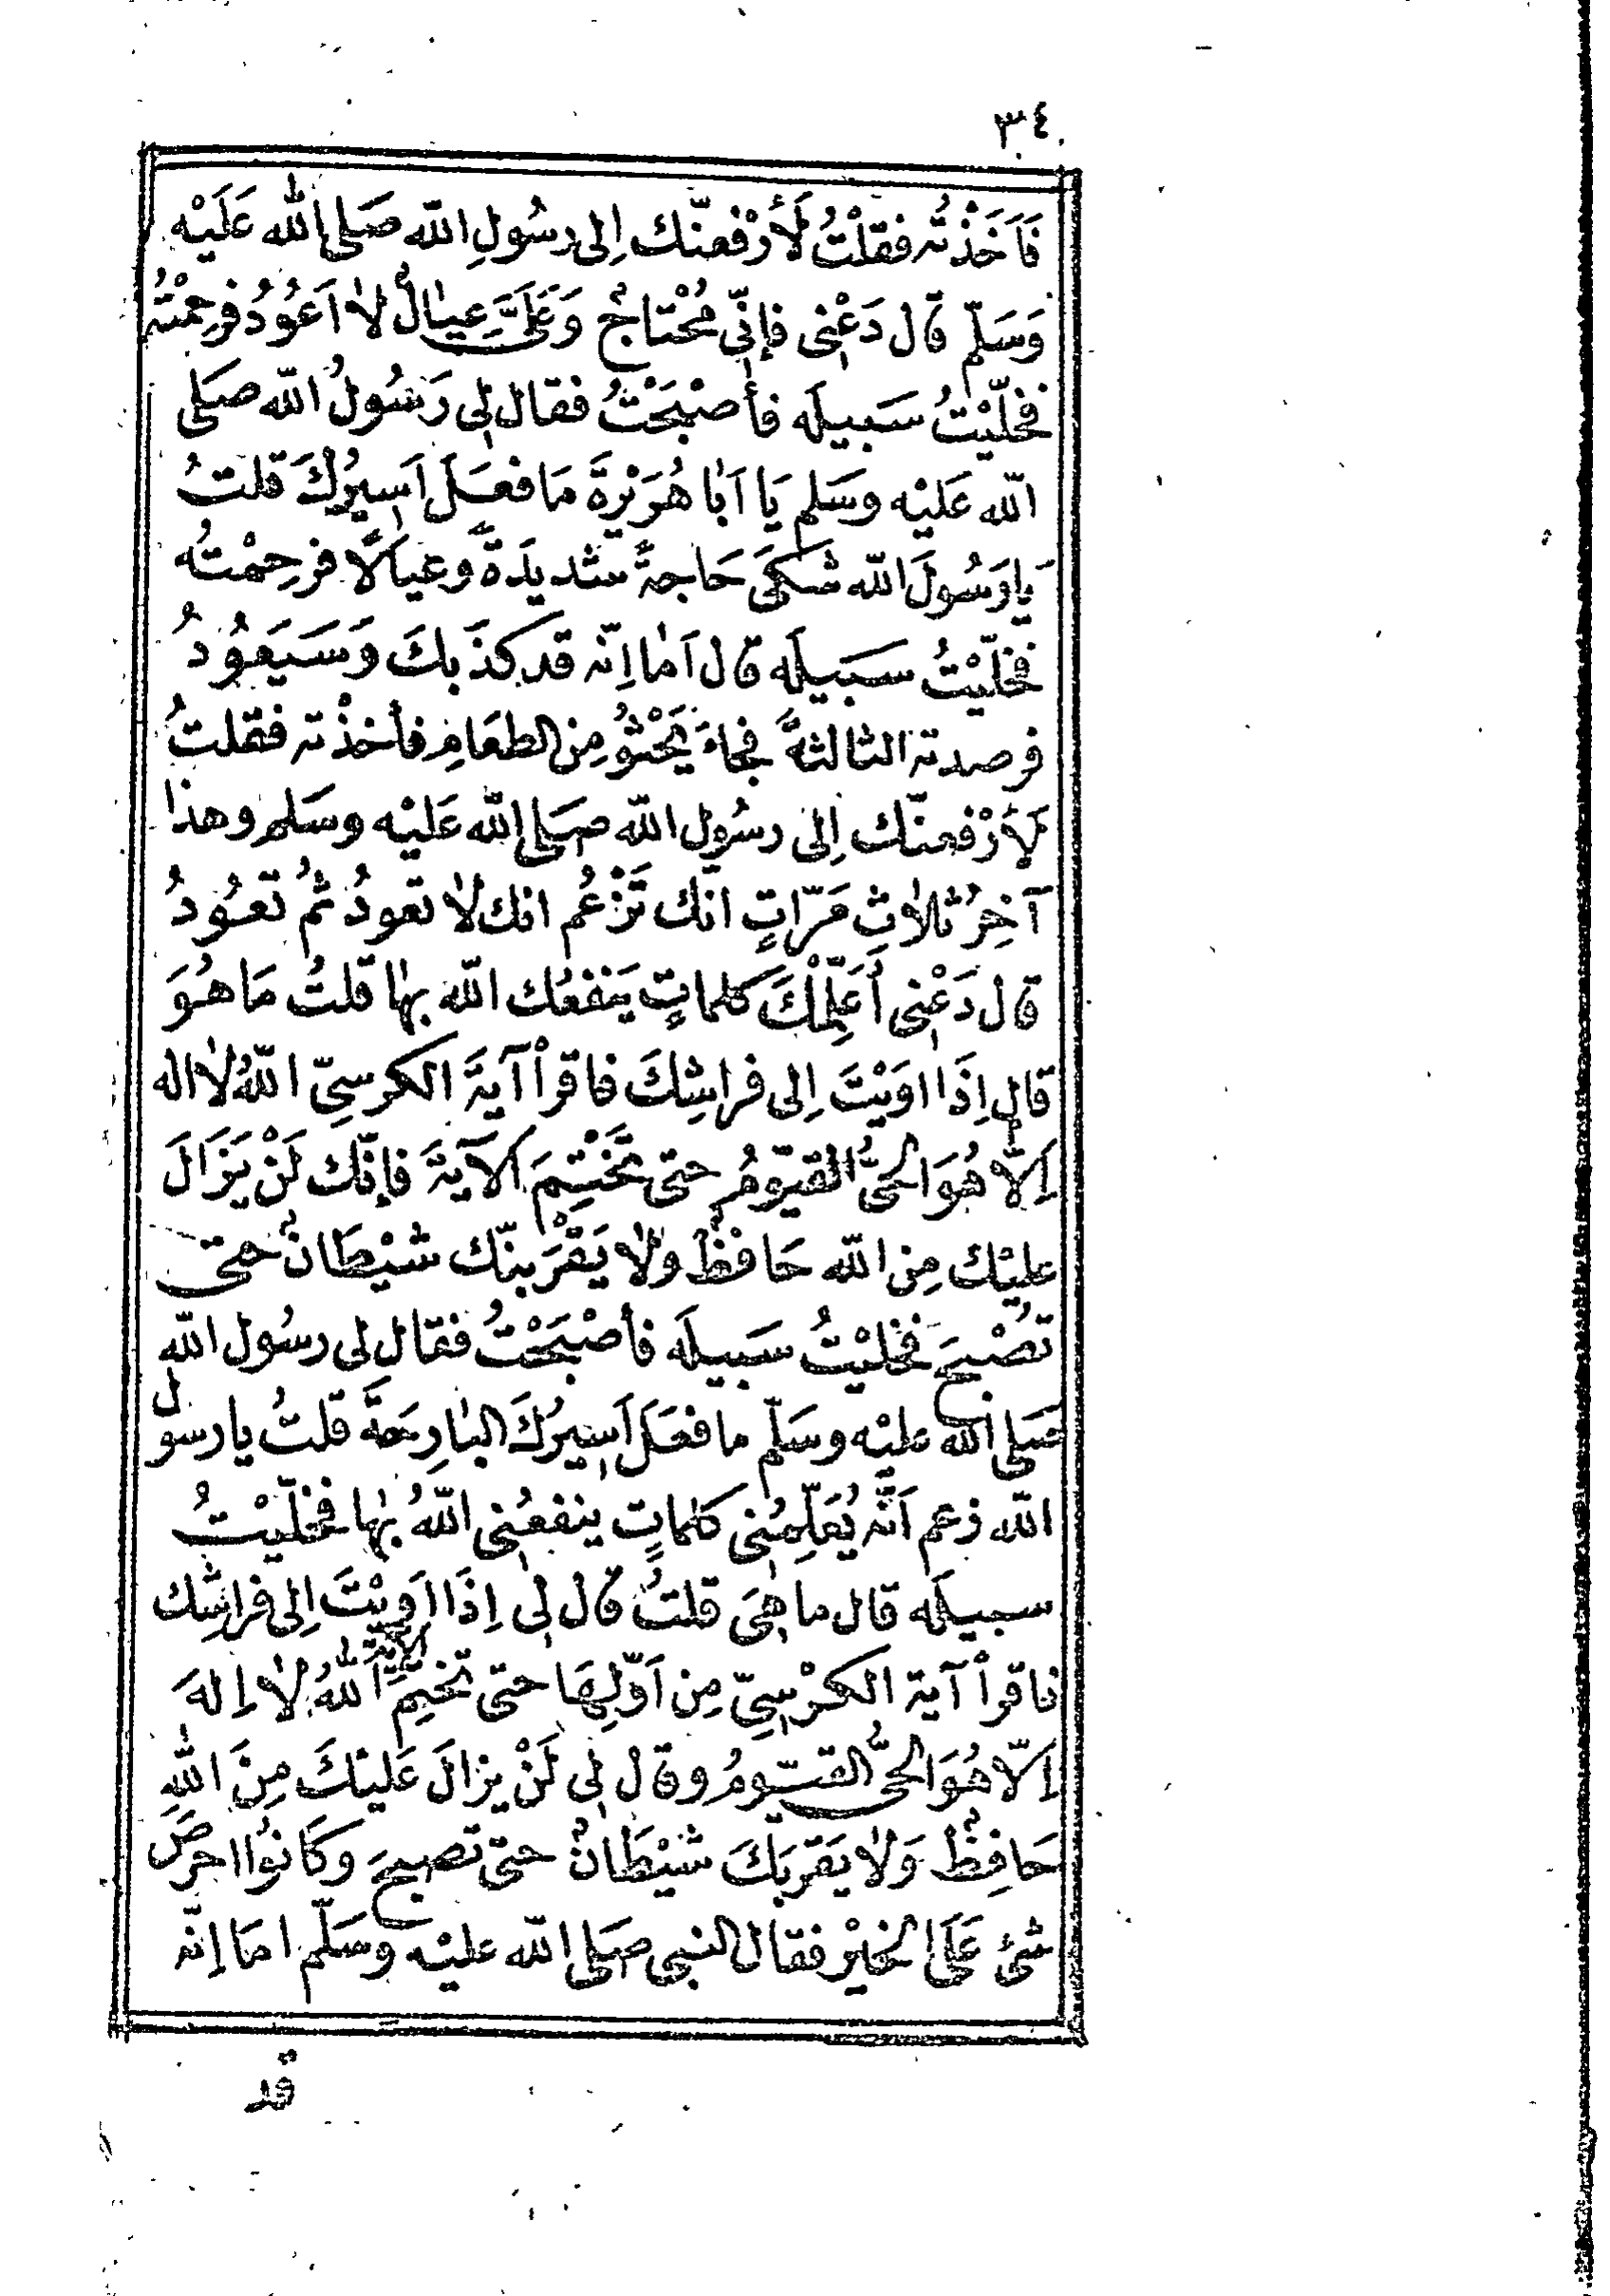 ٣٤
فَاَخَذْتُه فقلْتُ لَأَرْفعنّك اِلى رسُولِ اللّه صَلى اللّه عَلَيْه
وَسَلم قال دَعْنِى فإنّى مُحْتاجٌ وَعَلَىَّ عِيالٌ لا اَعُوُدُ فرحِمْتُه
فخلّيْتُ سَبيلَه فأصْبَحْتُ فقال لِى رَسُولُ اللّه صَلى
اللّه عَليْه وسَلم يَا اَبَا هُرَيْرةَ مَا فعَلَ اَسِيرُكَ قلتُ
يا رَسُولَ اللّه شكَى حَاجةً شديدَةً وعيالًا فرحِمْتُه
فخلّيْتُ سَبيلَه قال اَما اِنّه قد كذَبكَ وَسَيَعُوُدُ
فرصدته الثالثةَ فجاءَ يَحْثوُ مِن الطعَامِ فأخذْته فقلتُ
لَأرْفعنّك اِلى رسُول اللّه صَلى اللّه عَليْه وسَلم وهذا
آخِرُ ثلاثِ مَرّاتٍ انك تَزْعُم انك لا تعودُ ثمُ تعُودُ
قال دَعْنِى اُعَلِّمْكَ كلماتٍ يَنفعُك اللّه بها قلتُ مَا هُوَ
قال اِذَا اوَيْتَ اِلى فراشِكَ فاقرأ آيَةَ الكرسِىّ اللّهُ لا اله
اِلّا هُوَ الحىُّ القيّومُ حتى تَخْتِمَ الآيَةَ فإنّك لَنْ يَزَالَ
عليْك مِن اللّه حَافظٌ ولا يَقْرَبنّك شيْطَانٌ حتى
تُصْبحَ فخليْتُ سَبيلَه فأصْبَحْتُ فقال لى رسُول اللّه
صَلى اللّه عليْه وسَلّم ما فعَلَ اَسِيرُكَ البارِحَةَ قلتُ يا رسول
اللّه زعم اَنَّه يُعَلِّمُنِى كلماتٍ ينفعُنِى اللّهُ بها فخلّيْتُ
سبيلَه قال ما هِىَ قلتُ قال لِى اِذَا اَوَيْتَ اِلى فراشِك
فاقرأ آية الكرْسِىّ مِن اَوّلِهَا حتى تختِمَ الآيَةَ اللّهُ لا اِلهَ
اِلّا هُوَ الحىُّ القيّومُ وقال لِى لَنْ يزالَ عَليْكَ مِنَ اللّهِ
حَافِظٌ وَلا يَقربَكَ شيْطَانٌ حتى تصبحَ وكَانوُا احرصَ
شئ عَلَى الخيْر فقال النبى صَلى اللّه عليْه وسَلّم امَا اِنّه
قد